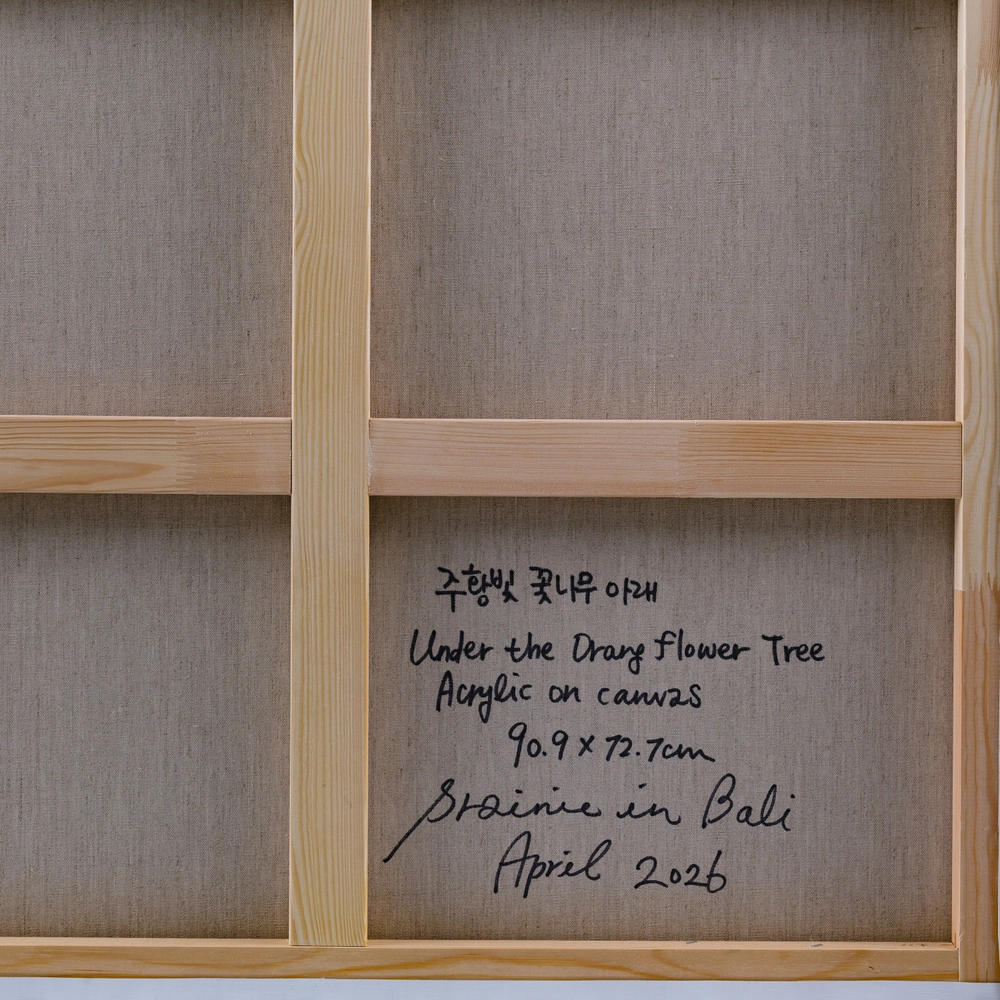 주황빛 꽃나무 아래
Under the Orang flower Tree
Acrylic on canvas
90.9 x 72.7cm
in Bali
April 2026